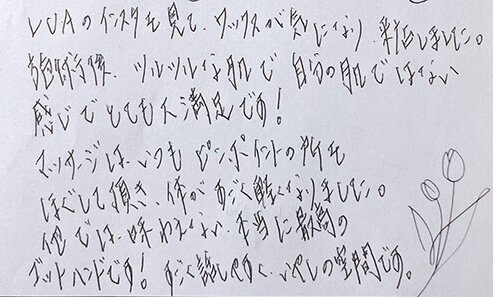 LUAのインスタを見て、ワックスが気になり、来店しました。
施術後、ツルツルな肌で自分の肌ではない
感じでとても大満足です！
マッサージは、いつもピンポイントの所を
ほぐして頂き、体がすごく軽くなりました。
他では味わえない、本当に最高の
ゴットハンドです！すごく話しやすく、いやしの空間です。